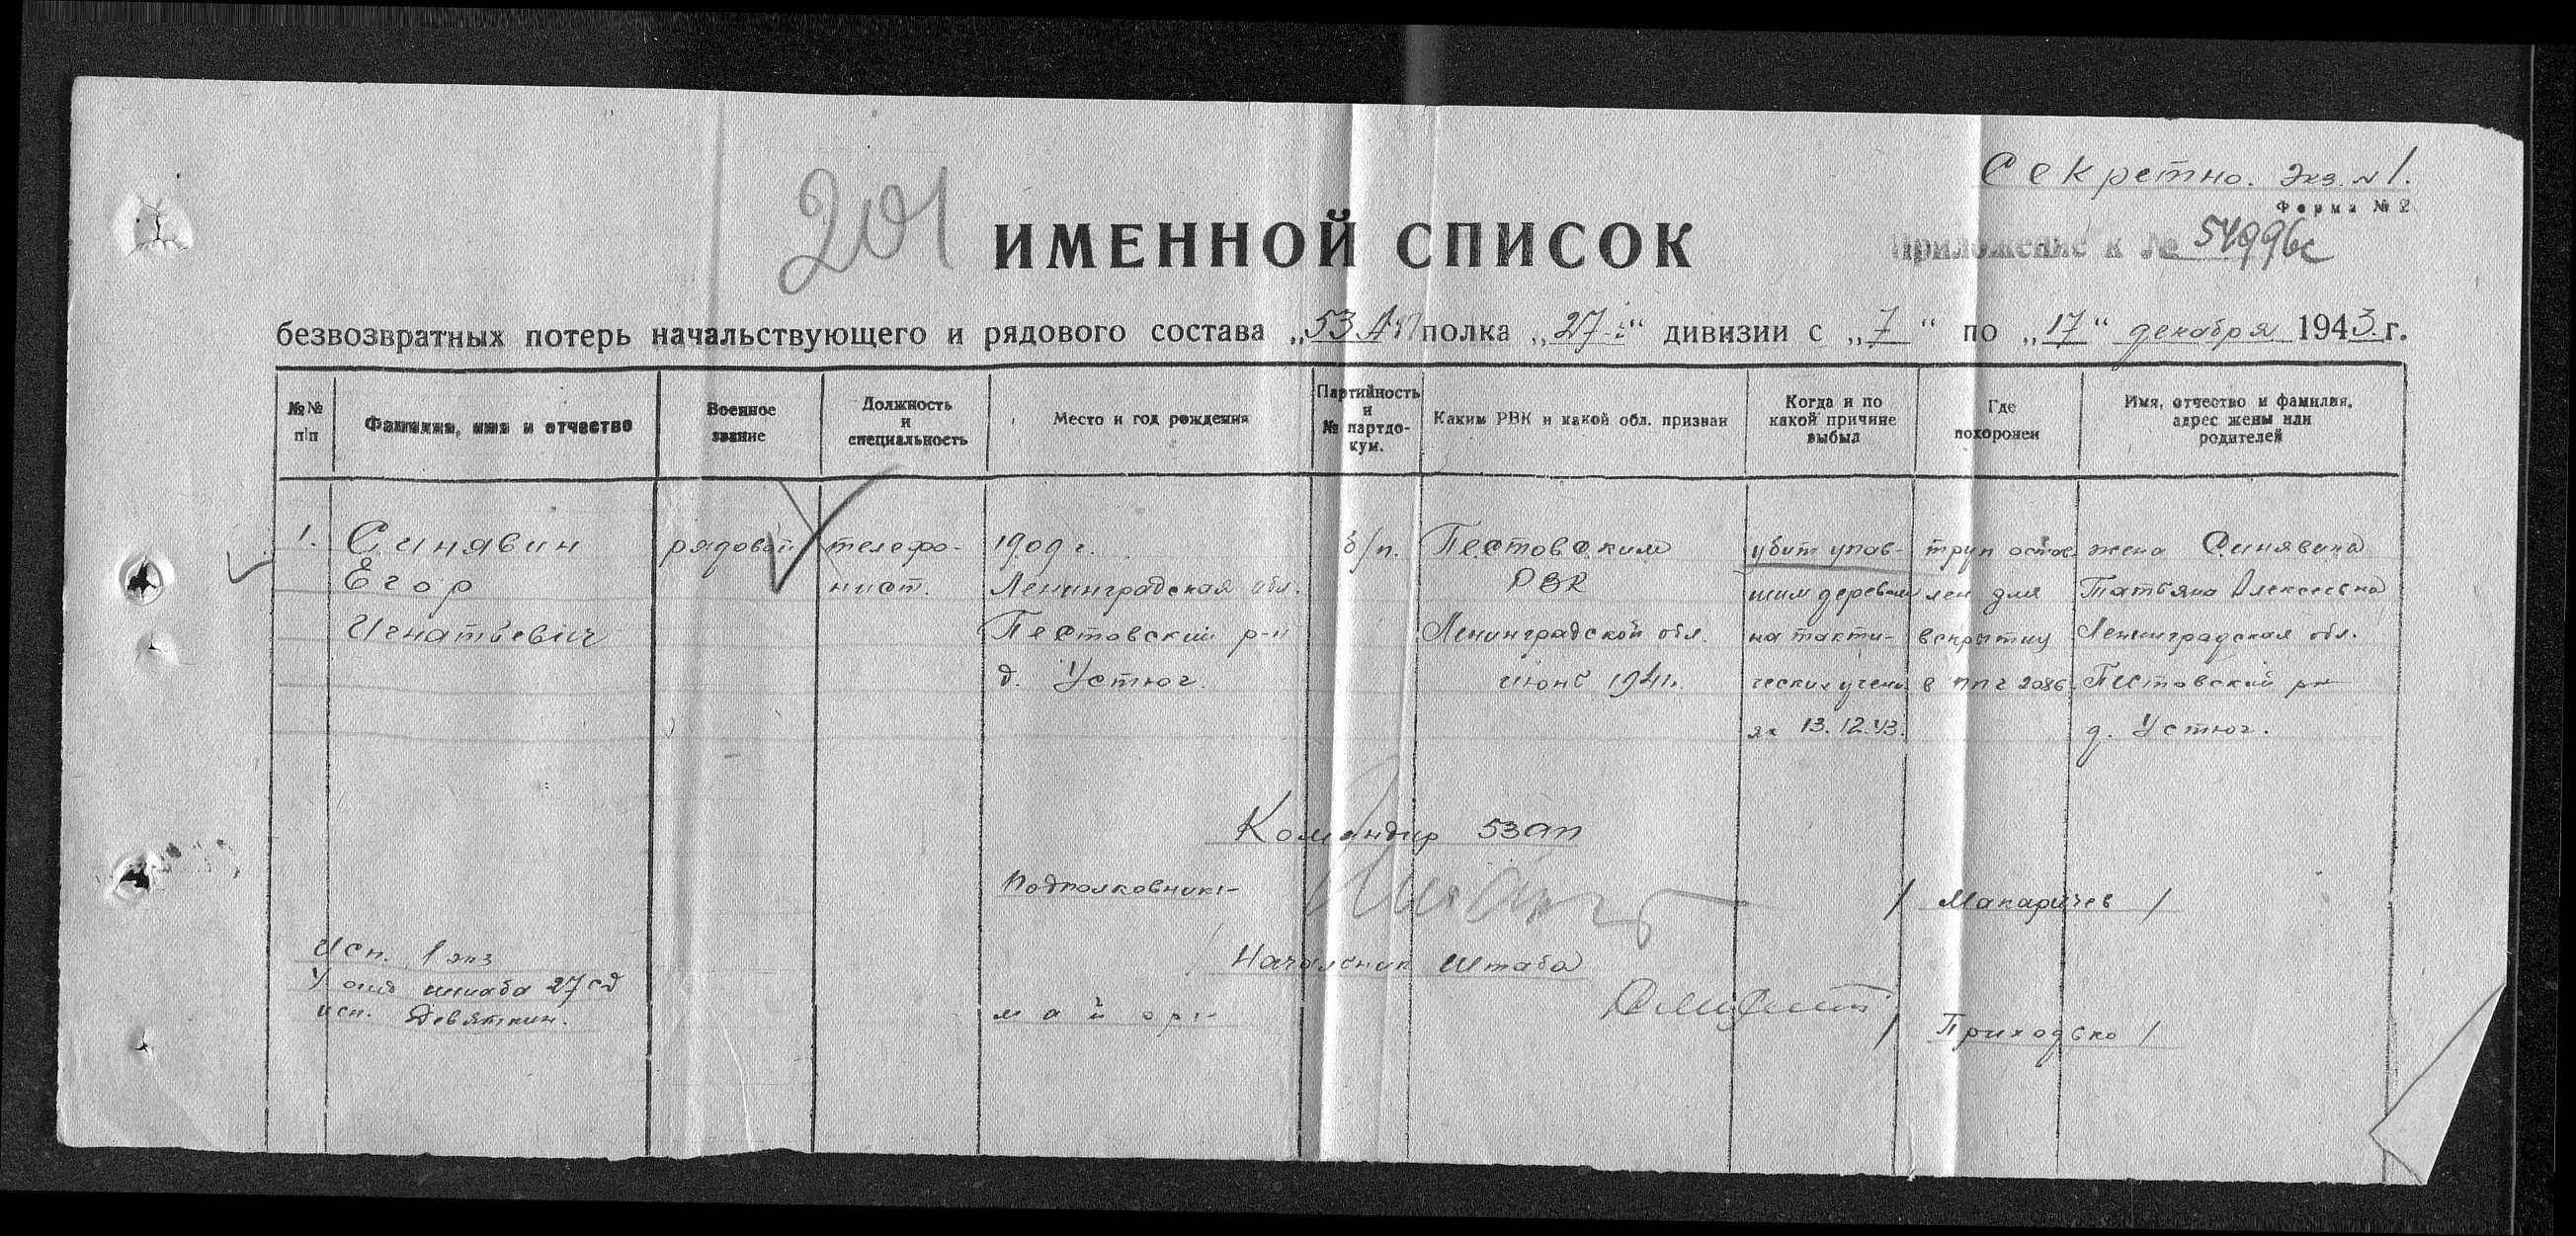 201
Секретно. Экз. №1.
Форма № 2
ИМЕННОЙ СПИСОК
Приложение к № 54996с
безвозвратных потерь начальствующего и рядового состава „53 АП“ полка „27-й“ дивизии с „7“ по „17“ декабря 1943 г.
№№ п/п
Фамилия, имя и отчество
Военное звание
Должность и специальность
Место и год рождения
Партийность и № партдокум.
Каким РВК и какой обл. призван
Когда и по какой причине выбыл
Где похоронен
Имя, отчество и фамилия, адрес жены или родителей
1. Синявин рядовой телефо- 1909 г. б/п. Пестовским убит упав- труп остав- жена Синявина
Егор нист. Ленинградская обл. РВК шим деревом лен для Татьяна Алексеевна
Игнатьевич Пестовский р-н Ленинградской обл. на такти- вскрытия Ленинградская обл.
д. Устюг. июнь 1941г. ческих учени- в ппг 2086 Пестовский рн
ях 13.12.43. д. Устюг.
Командир 53 ап
Подполковник:- / Макаричев /
Начальник штаба
майор:- / Приходько /
Исп. 1 экз
У онш штаба 27 сд
исп. Девяткин.